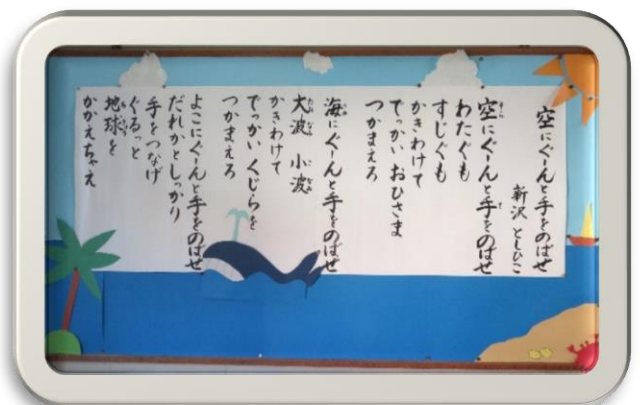 空にぐーんと手をのばせ
新沢 としひこ
空にぐーんと手をのばせ
わたぐも
すじぐも
かきわけて
でっかい おひさま
つかまえろ
海にぐーんと手をのばせ
大波 小波
かきわけて
でっかい くじらを
つかまえろ
よこにぐーんと手をのばせ
だれかとしっかり
手をつなげ
ぐるっと
地球を
かかえちゃえ